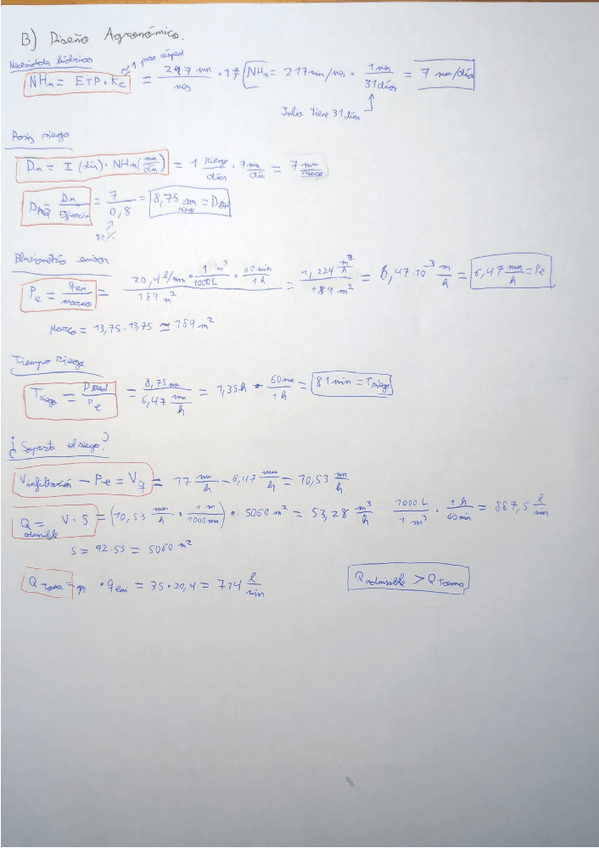 B) Diseño Agronómico.
Necesidades hídricas
≈ 1 para césped
NHn = ETP · Kc = 217 mm/mes · 1 → NHn = 217 mm/mes · 1 mes/31 días = 7 mm/día
Julio tiene 31 días
Dosis riego
Dn = I (día) · NHn (mm/día) = 1 riego/día · 7 mm/día = 7 mm/riego
= Dn/Eficiencia = 7/0,8 = 8,75 mm/riego
80%
Pluviometría emisor
Pe = qem/marco = 20,4 l/min · 1 m³/1000L · 60 min/1 h / 189 m² = 1,224 m³/h / 189 m² = 6,47·10⁻³ m/h = 6,47 mm/h = Pe
Marco = 13,75 · 13,75 ≈ 189 m²
Tiempo riego
Triego = /Pe = 8,75 mm / 6,47 mm/h = 1,35 h · 60 min/1 h = 81 min = Triego
¿Soporta el riego?
Vinfiltración - Pe = V = 17 mm/h - 6,47 mm/h = 10,53 mm/h
Qadmisible = V · S = (10,53 mm/h · 1 m/1000 mm) · 5060 m² = 53,28 m³/h 1000 L/1 m³ · 1 h/60 min = 887,5 l/min
S = 92·55 = 5060 m²
Qtoma = n · qem = 35 · 20,4 = 714 l/min
Qadmisible > Qtoma